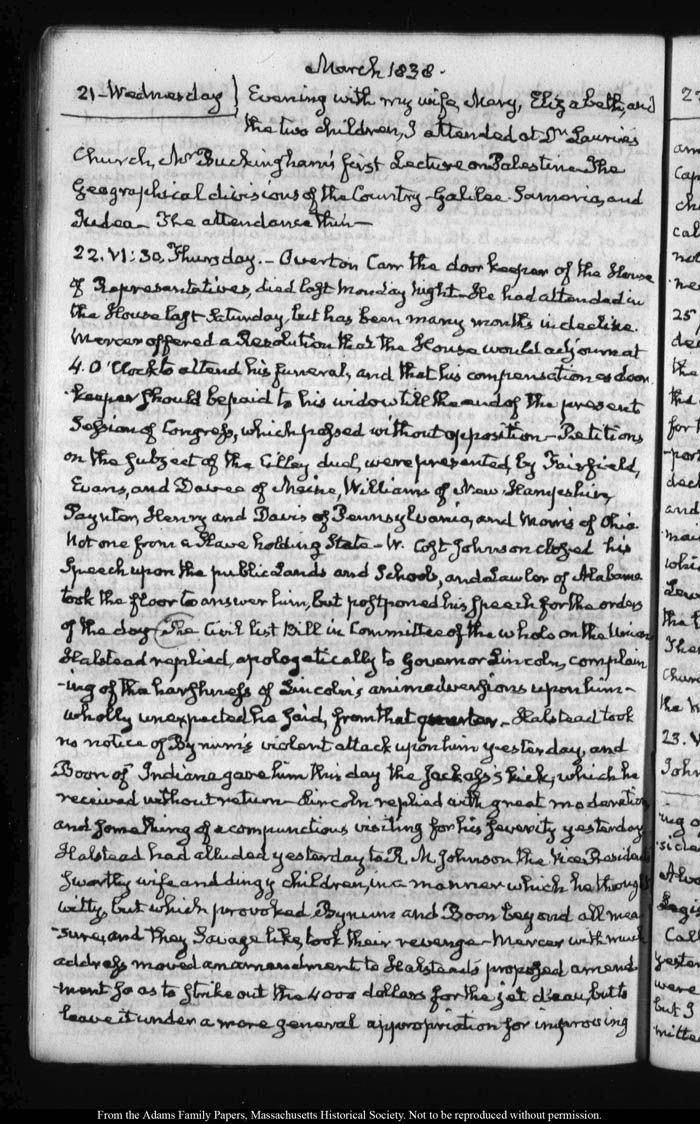 March 1838.
21-Wednesday} Evening with my wife, Mary, Elizabeth, and
the two children, I attended at Dr. Laurie's
Church, Mr Buckingham's first Lecture on Palestine The
Geographical divisions of the Country - Galilee Samaria, and
Judea - The attendance thin -
22. VI:30. Thursday. - Overton Carr the door keeper of the House
of Representatives, died last Monday Night - He had attended in
the House last Saturday, but has been many months in decline.
Mercer offered a Resolution that the House would adjourn at
4. O'Clock to attend his funeral, and that his compensation as door
keeper should be paid to his widow till the end of the present
Session of Congress, which passed without opposition - Petitions
on the subject of the Cilley duel, were presented by Fairfield,
Evans, and Davee of Maine, Williams of New Hampshire,
Paynter, Henry and Davis of Pennsylvania, and Morris of Ohio
Not one from a Slave holding State - W. Cost Johnson closed his
Speech upon the public Lands and Schools, and Lawler of Alabama
took the floor to answer him, but postponed his speech for the orders
of the day The Civil list Bill in Committee of the whole on the Union
Halstead replied, apologetically to Governor Lincoln, complain
-ing of the harshness of Lincoln's animadversions upon him -
wholly unexpected he said, from that quarter. - Halstead took
no notice of Bynum's violent attack upon him yesterday, and
Boon of Indiana gave him this day the Jackass's kick, which he
received without return - Lincoln replied with great moderation
and something of a compunctious visiting for his severity yesterday
Halstead had alluded yesterday to R. M. Johnson the Vice President
swarthy wife and dingy children, in a manner which he thought
witty, but which provoked Bynum and Boon beyond all mea
-sure, and they Savage like, took their revenge - Mercer with much
address moved an amendment to Halstead's proposed amend
-ment so as to strike out the 4000 dollars for the jet d'eau, but to
leave it under a more general appropriation for improving
From the Adams Family Papers, Massachusetts Historical Society. Not to be reproduced without permission.